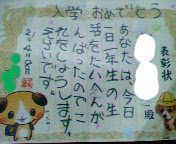 入学おめでとう
表彰状
殿
あなたは、今日
一日一年生の生
活をたいへんが
んばったのでこ
れをしょうします。
えらいです。